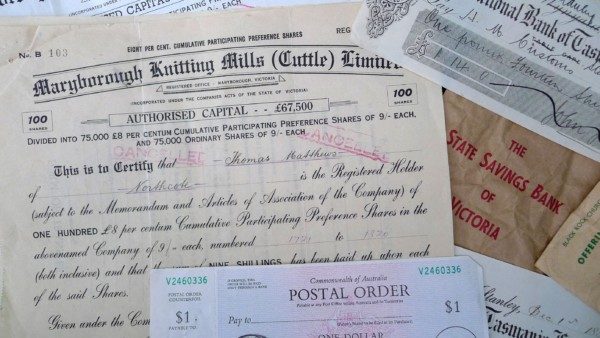 AUTHORISED CAPITAL
EIGHT PER CENT. CUMULATIVE PARTICIPATING PREFERENCE SHARES
No. B 103
Maryborough Knitting Mills (Cuttle) Limited
REGISTERED OFFICE - MARYBOROUGH, VICTORIA
(INCORPORATED UNDER THE COMPANIES ACTS OF THE STATE OF VICTORIA)
100 SHARES
AUTHORISED CAPITAL - - £67,500
100 SHARES
DIVIDED INTO 75,000 £8 PER CENTUM CUMULATIVE PARTICIPATING PREFERENCE SHARES OF 9/- EACH,
AND 75,000 ORDINARY SHARES OF 9/- EACH.
CANCELLED
CANCELLED
This is to Certify that Thomas Matthews
of Northcote is the Registered Holder
(subject to the Memorandum and Articles of Association of the Company) of
ONE HUNDRED £8 per centum Cumulative Participating Preference Shares in the
abovenamed Company of 9/- each, numbered to
(both inclusive) and that the sum of NINE SHILLINGS has been paid up upon each
of the said Shares.
Given under the Com
V2460336
POSTAL ORDER
COUNTERFOIL
$1
PAYABLE TO
Commonwealth of Australia
V2460336
POSTAL ORDER
Pay to
$1
ONE DOLLAR
National Bank of Tasm
One pound fourteen
STATE SAVINGS BANK
OF
VICTORIA
BLACK ROCK
OFFERING
Stanley, Dec
Tasmania